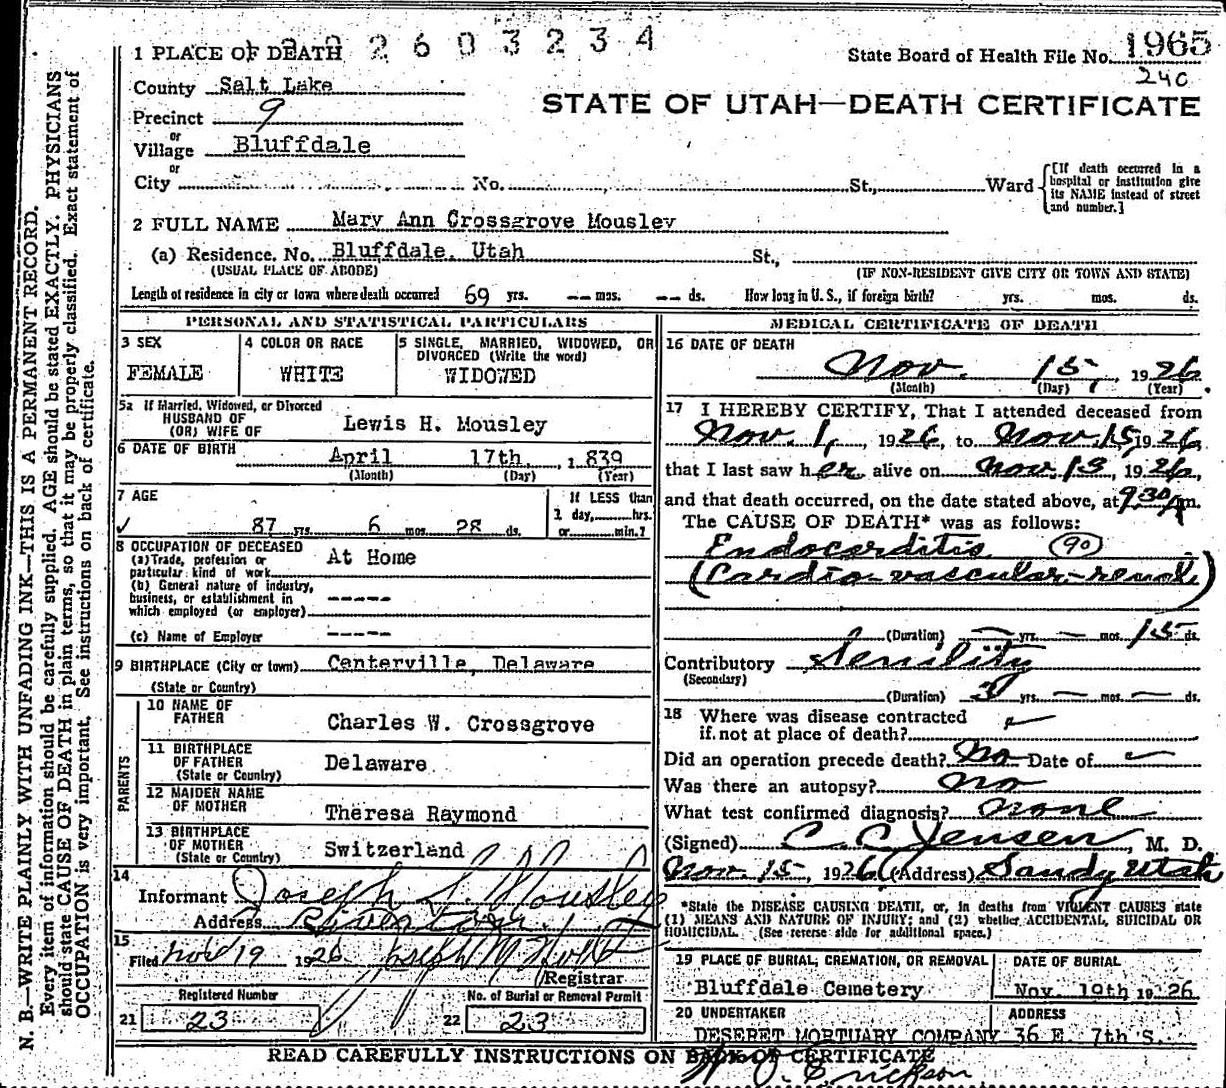 2603234
1 PLACE OF DEATH
State Board of Health File No. 1965
240
County Salt Lake
STATE OF UTAH—DEATH CERTIFICATE
Precinct 9
or
Village Bluffdale
or
City No. St., Ward
[If death occurred in a hospital or institution give its NAME instead of street and number.]
2 FULL NAME Mary Ann Crossgrove Mousley
(a) Residence. No. Bluffdale, Utah St.,
(USUAL PLACE OF ABODE) (IF NON-RESIDENT GIVE CITY OR TOWN AND STATE)
Length of residence in city or town where death occurred 69 yrs. -- mos. -- ds. How long in U. S., if foreign birth? yrs. mos. ds.
PERSONAL AND STATISTICAL PARTICULARS
3 SEX
FEMALE
4 COLOR OR RACE
WHITE
5 SINGLE, MARRIED, WIDOWED, OR
DIVORCED (Write the word)
WIDOWED
5a If Married, Widowed, or Divorced
HUSBAND OF
(OR) WIFE OF Lewis H. Mousley
6 DATE OF BIRTH April 17th, 1839
(Month) (Day) (Year)
7 AGE
87 yrs. 6 mos. 28 ds.
If LESS than
1 day, hrs.
or min.?
8 OCCUPATION OF DECEASED
(a) Trade, profession or
particular kind of work At Home
(b) General nature of industry,
business, or establishment in
which employed (or employer) -----
(c) Name of Employer -----
9 BIRTHPLACE (City or town) Centerville, Delaware
(State or Country)
PARENTS
10 NAME OF
FATHER Charles W. Crossgrove
11 BIRTHPLACE
OF FATHER Delaware
(State or Country)
12 MAIDEN NAME
OF MOTHER Theresa Raymond
13 BIRTHPLACE
OF MOTHER Switzerland
(State or Country)
14
Informant Joseph L. Mousley
Address Riverton
15
Filed Nov 19 1926 Joseph M
Registrar
Registered Number
21 23
No. of Burial or Removal Permit
22 23
MEDICAL CERTIFICATE OF DEATH
16 DATE OF DEATH
Nov. 15, 1926
(Month) (Day) (Year)
17 I HEREBY CERTIFY, That I attended deceased from
Nov. 1, 1926, to Nov 15, 1926
that I last saw her alive on Nov 13, 1926,
and that death occurred, on the date stated above, at 9:30 A m.
The CAUSE OF DEATH* was as follows:
Endocarditis (90)
(Cardio-vascular-renal)
(Duration) — yrs. — mos. 15 ds.
Contributory Senility
(Secondary)
(Duration) yrs. — mos. — ds.
18 Where was disease contracted
if not at place of death?
Did an operation precede death? No Date of
Was there an autopsy? No
What test confirmed diagnosis? None
(Signed) C. C. Jensen, M. D.
Nov. 15, 1926 (Address) Sandy Utah
*State the DISEASE CAUSING DEATH, or, in deaths from VIOLENT CAUSES state
(1) MEANS AND NATURE OF INJURY; and (2) whether ACCIDENTAL, SUICIDAL OR
HOMICIDAL. (See reverse side for additional space.)
19 PLACE OF BURIAL, CREMATION, OR REMOVAL
Bluffdale Cemetery
DATE OF BURIAL
Nov. 19th 1926
20 UNDERTAKER
DESERET MORTUARY COMPANY
ADDRESS
36 E. 7th S.
READ CAREFULLY INSTRUCTIONS ON BACK OF CERTIFICATE
Erickson
N. B.—WRITE PLAINLY WITH UNFADING INK—THIS IS A PERMANENT RECORD.
Every item of information should be carefully supplied. AGE should be stated EXACTLY. PHYSICIANS
should state CAUSE OF DEATH in plain terms, so that it may be properly classified. Exact statement of
OCCUPATION is very important. See instructions on back of certificate.